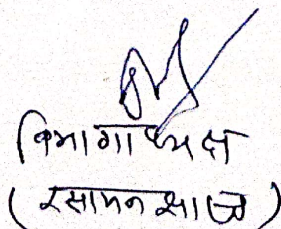 विभागाध्यक्ष
(रसायन शास्त्र)